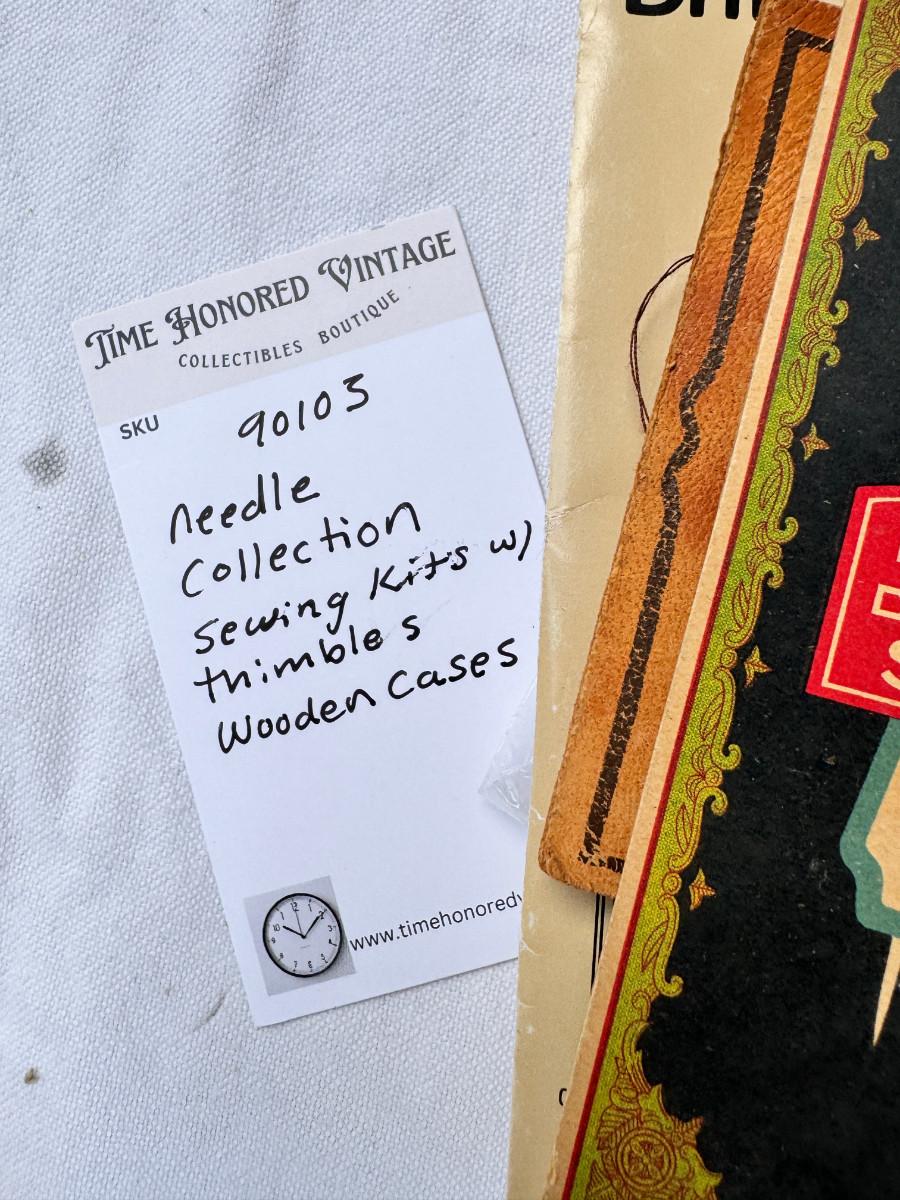 TIME HONORED VINTAGE
COLLECTIBLES BOUTIQUE
SKU 90103
needle
Collection
sewing Kits w/
thimbles
Wooden Cases
www.timehonoredv